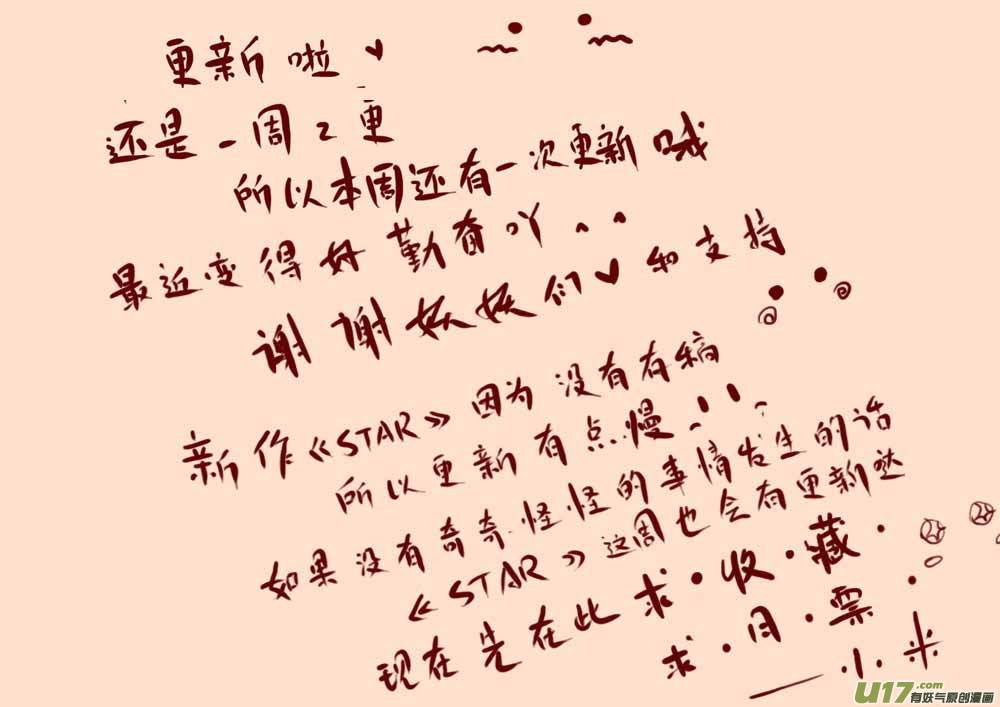 更新啦♥
还是一周2更
所以本周还有一次更新哦
最近变得好勤奋吖^^
谢谢妖妖们♥和支持
新作《STAR》因为没有存稿
所以更新有点慢..
如果没有奇奇怪怪的事情发生的话
《STAR》这周也会有更新哒
现在先在此求·收·藏·
求·月·票·
——小米
U17.COM
有妖气原创漫画